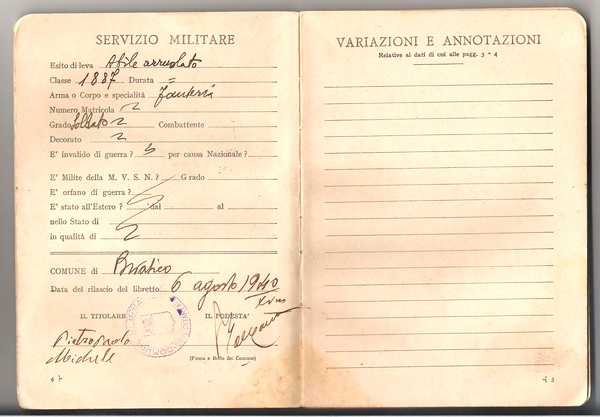 SERVIZIO MILITARE
Esito di leva Abile arruolato
Classe 1887 Durata =
Arma o Corpo e specialità Fanteria
Numero Matricola
Grado Soldato Combattente
Decorato
E' invalido di guerra? per causa Nazionale?
E' Milite della M. V. S. N.? Grado
E' orfano di guerra?
E' stato all'Estero? dal al
nello Stato di
in qualità di
COMUNE di
Data del rilascio del libretto 6 agosto 1940
XVIII
IL TITOLARE IL PODESTA'
Michele
(Firma e Bollo del Comune)
4
VARIAZIONI E ANNOTAZIONI
Relative ai dati di cui alle pagg. 3 - 4